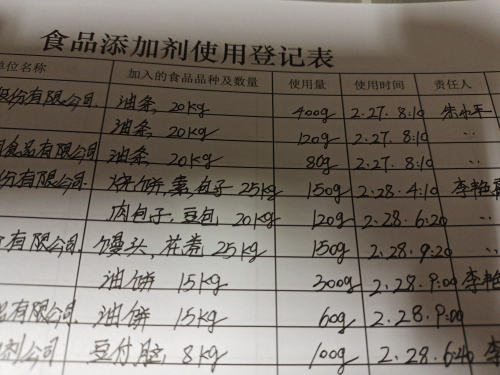 食品添加剂使用登记表
单位名称 加入的食品品种及数量 使用量 使用时间 责任人
股份有限公司. 油条, 20kg 400g 2.27. 8:10
油条 20kg 120g 2.27. 8:10 〃
食品有限公司 油条 20kg 80g 2.27. 8:10 〃
份有限公司. 烧饼,素,包子 25kg 150g 2.28.4:10 李艳
肉包子,豆包, 20kg 120g 2.28.6:20 〃
有限公司. 馒头,花卷 25kg 150g 2.28.9:20
油饼 15kg 300g 2.28.9:00 李艳
有限公司. 油饼 15kg 60g 2.28.9:00
剂公司 豆付脑, 8kg 100g 2.28.6:40 李